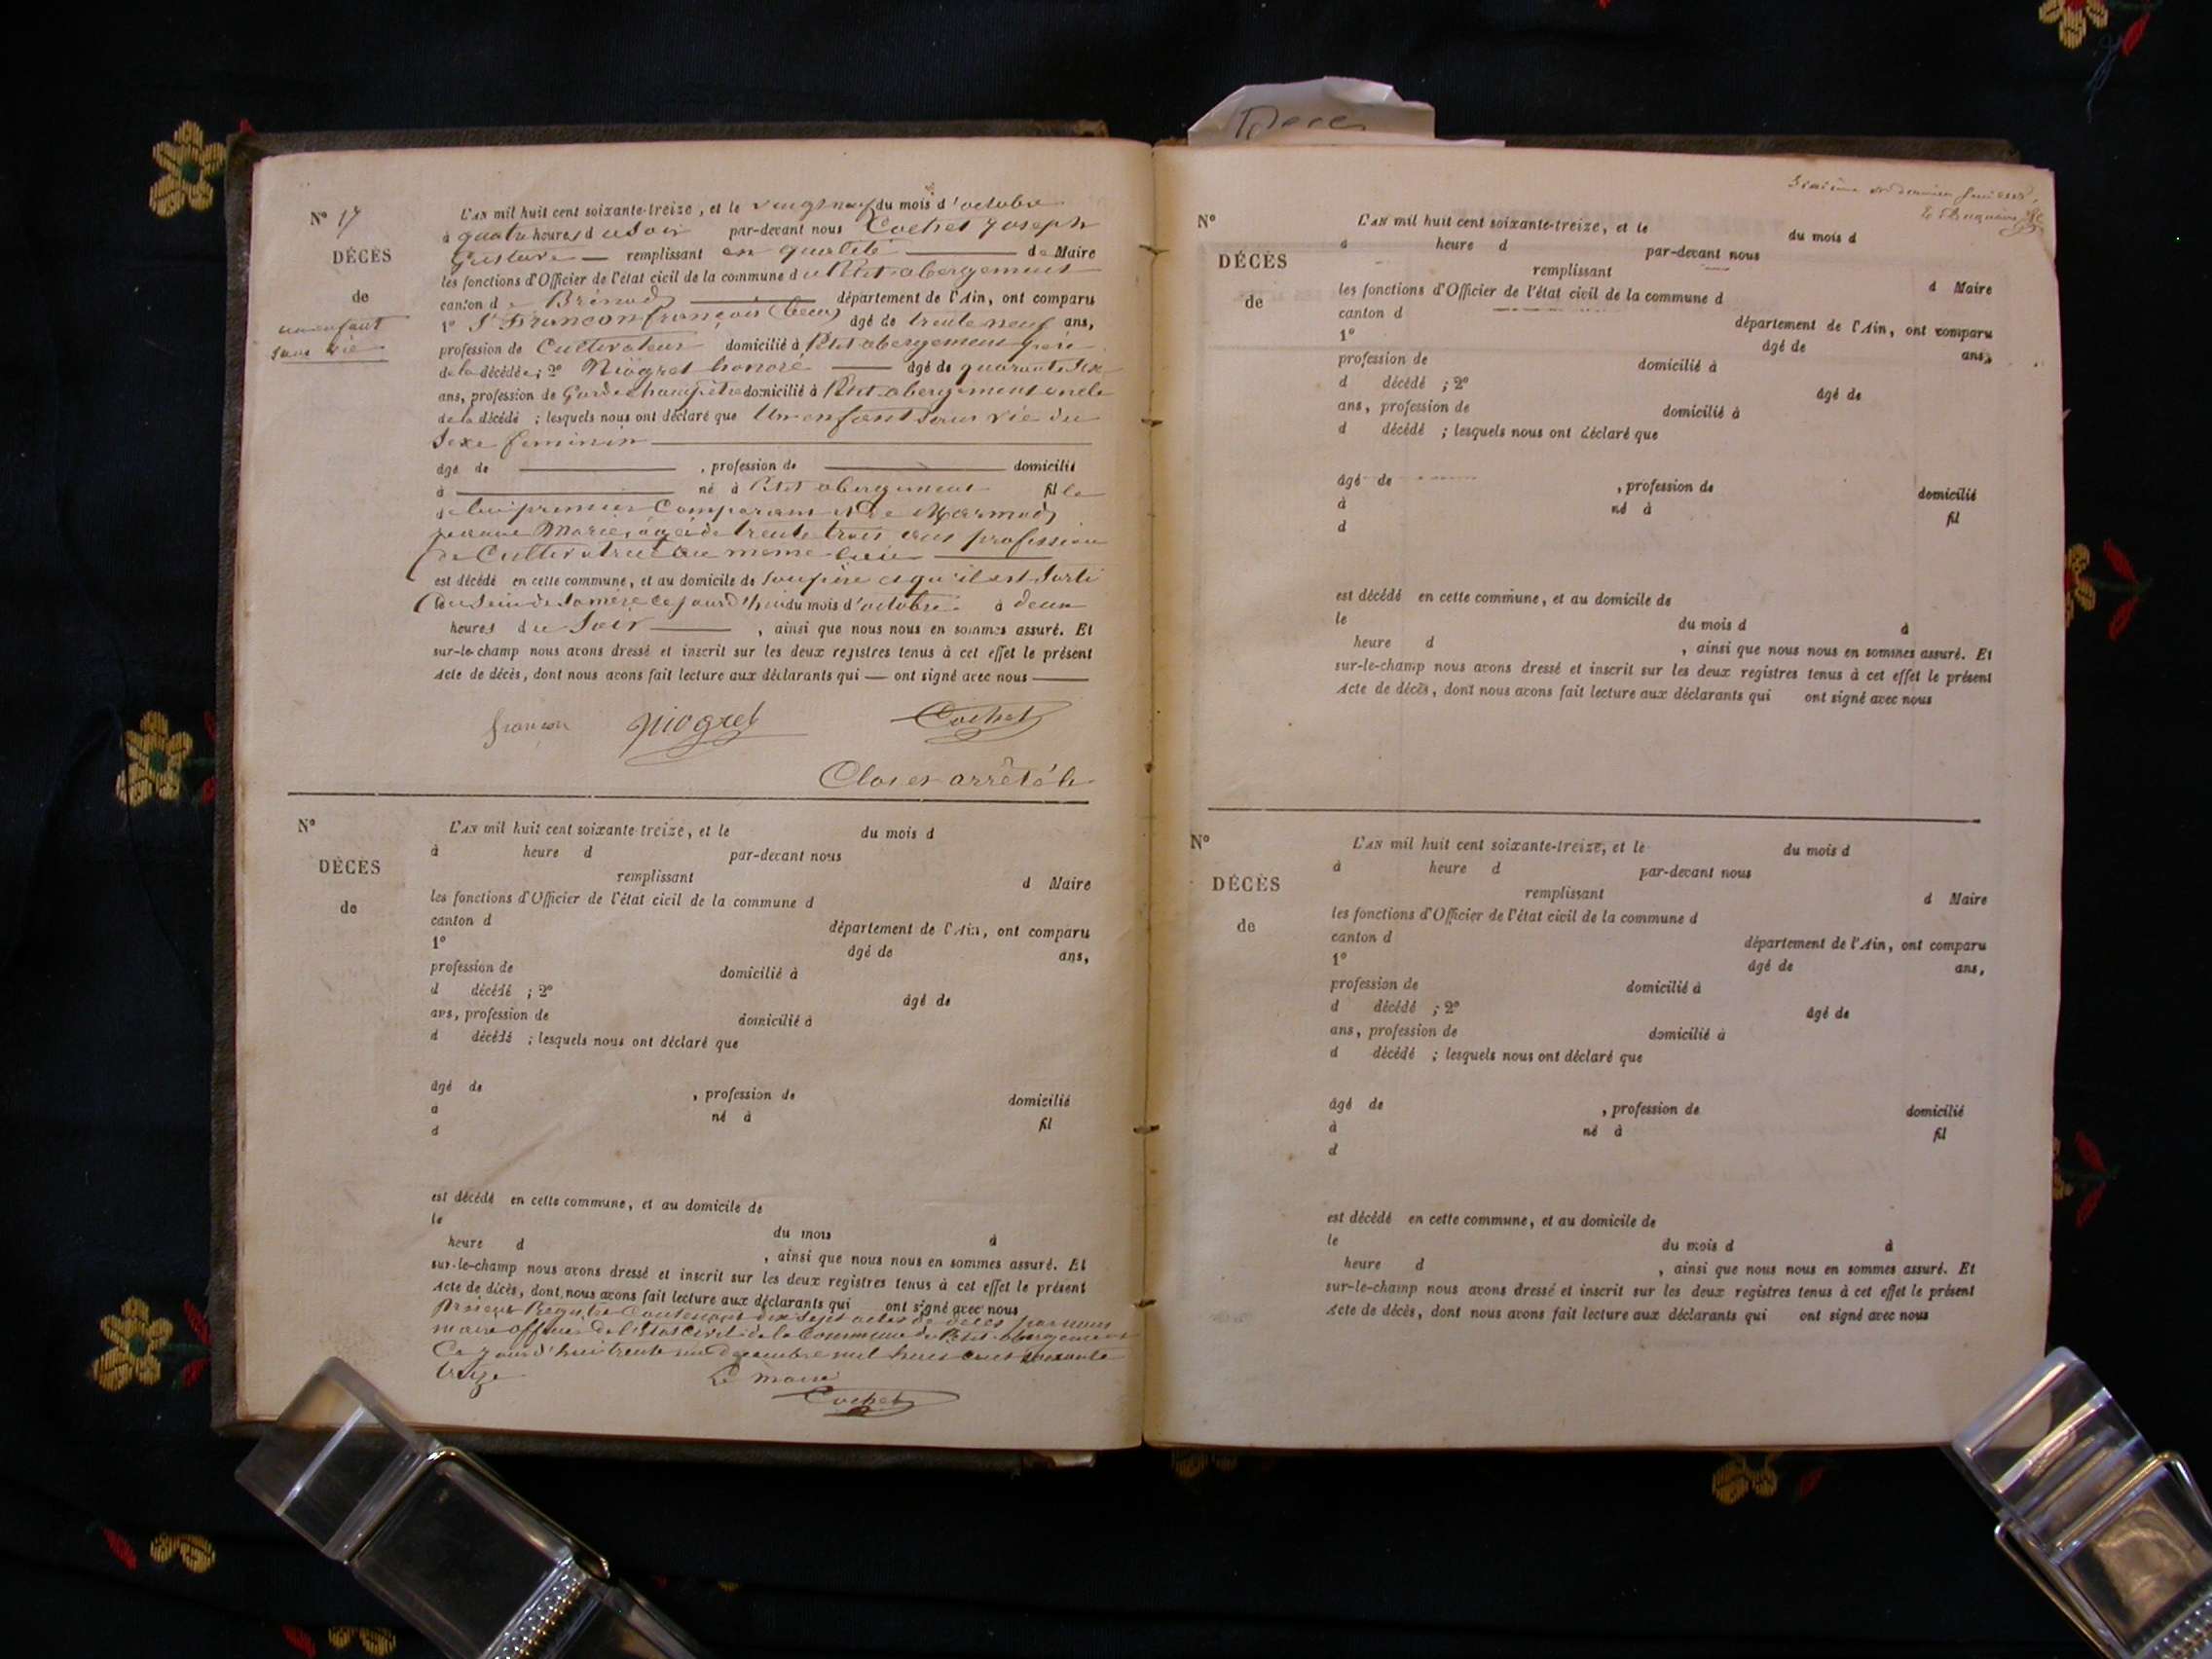 N° 17
DÉCÈS
de
un enfant
sans vie
L'AN mil huit cent soixante-treize, et le vingt neuf du mois d'octobre
à quatre heures du Soir par-devant nous Cochet Joseph
remplissant en qualité de Maire
les fonctions d'Officier de l'état civil de la commune du Petit abergement
canton de Brénod département de l'Ain, ont comparu
1° françois âgé de trente neuf ans,
profession de Cultivateur domicilié à Petit abergement père
de la décédée; 2° Niogret honoré âgé de quarante Six
ans, profession de Garde champêtre domicilié à Petit abergement oncle
de la décédé ; lesquels nous ont déclaré que Un enfant Sans vie du
Sexe feminin
âgé de , profession de domicilié
à né à Petit abergement fille
de lui premier Comparant et de Mermod
jeanne Marie, âgée de trente trois ans profession
de Cultivatrice au meme lieu
est décédé en cette commune, et au domicile de Son père et qu'il est Sorti
du Sein de Sa mère ce jourd'hui du mois d'octobre à deux
heures du Soir , ainsi que nous nous en sommes assuré. Et
sur-le-champ nous avons dressé et inscrit sur les deux registres tenus à cet effet le présent
Acte de décès, dont nous avons fait lecture aux déclarants qui ont signé avec nous
françon Niogret Cochet
Clos et arrêté le
N°
DÉCÈS
de
L'AN mil huit cent soixante-treize, et le du mois d
à heure d par-devant nous
remplissant d Maire
les fonctions d'Officier de l'état civil de la commune d
canton d département de l'Ain, ont comparu
1° âgé de ans,
profession de domicilié à
d décédé ; 2° âgé de
ans, profession de domicilié à
d décédé ; lesquels nous ont déclaré que
âgé de , profession de domicilié
à né à fil
d
est décédé en cette commune, et au domicile de
le du mois à
heure d , ainsi que nous nous en sommes assuré. Et
sur-le-champ nous avons dressé et inscrit sur les deux registres tenus à cet effet le présent
Acte de décès, dont nous avons fait lecture aux déclarants qui ont signé avec nous
présent Registre Contenant dix Sept actes de décès par nous
maire officier de l'Etat Civil de la Commune du Petit abergement
Ce jourd'hui trente un decembre mil huit cent soixante
treize Le maire
Cochet
Décès
Sixième et dernier feuillet,
N°
DÉCÈS
de
L'AN mil huit cent soixante-treize, et le du mois d
à heure d par-devant nous
remplissant d Maire
les fonctions d'Officier de l'état civil de la commune d
canton d département de l'Ain, ont comparu
1° âgé de ans,
profession de domicilié à
d décédé ; 2° âgé de
ans, profession de domicilié à
d décédé ; lesquels nous ont déclaré que
âgé de , profession de domicilié
à né à fil
d
est décédé en cette commune, et au domicile de
le du mois d à
heure d , ainsi que nous nous en sommes assuré. Et
sur-le-champ nous avons dressé et inscrit sur les deux registres tenus à cet effet le présent
Acte de décès, dont nous avons fait lecture aux déclarants qui ont signé avec nous
N°
DÉCÈS
de
L'AN mil huit cent soixante-treize, et le du mois d
à heure d par-devant nous
remplissant d Maire
les fonctions d'Officier de l'état civil de la commune d
canton d département de l'Ain, ont comparu
1° âgé de ans,
profession de domicilié à
d décédé ; 2° âgé de
ans, profession de domicilié à
d décédé ; lesquels nous ont déclaré que
âgé de , profession de domicilié
à né à fil
d
est décédé en cette commune, et au domicile de
le du mois d à
heure d , ainsi que nous nous en sommes assuré. Et
sur-le-champ nous avons dressé et inscrit sur les deux registres tenus à cet effet le présent
Acte de décès, dont nous avons fait lecture aux déclarants qui ont signé avec nous